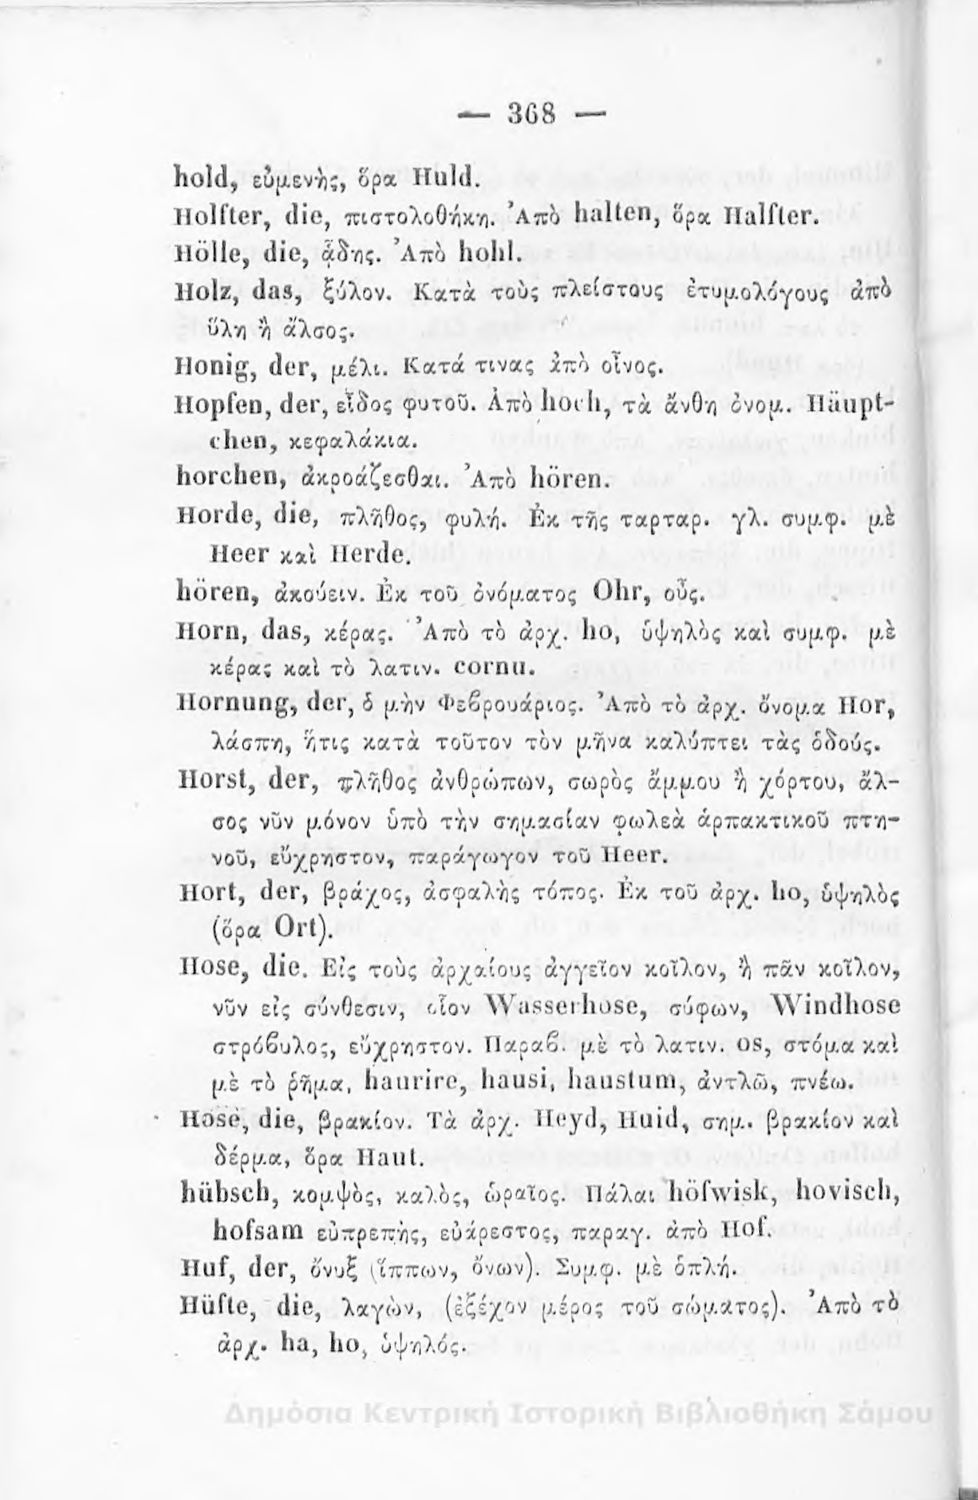 — 368 —
hold, εὐμενὴς, ὅρα Huld.
Holfter, die, πιστολοθήκη. Ἀπὸ halten, ὅρα Halfter.
Hölle, die, ᾅδης. Ἀπὸ hohl.
Holz, das, ξύλον. Κατὰ τοὺς πλείστους ἐτυμολόγους ἀπὸ
ὕλη ἢ ἄλσος.
Honig, der, μέλι. Κατά τινας ἀπὸ οἶνος.
Hopfen, der, εἶδος φυτοῦ. Ἀπὸ hoch, τὰ ἄνθη ὀνομ. Häupt-
chen, κεφαλάκια.
horchen, ἀκροάζεσθαι. Ἀπὸ hören.
Horde, die, πλῆθος, φυλή. Ἐκ τῆς ταρταρ. γλ. συμφ. μὲ
Heer καὶ Herde.
hören, ἀκούειν. Ἐκ τοῦ ὀνόματος Ohr, οὖς.
Horn, das, κέρας. Ἀπὸ τὸ ἀρχ. ho, ὑψηλὸς καὶ συμφ. μὲ
κέρας καὶ τὸ λατιν. cornu.
Hornung, der, ὁ μὴν Φεβρουάριος. Ἀπὸ τὸ ἀρχ. ὄνομα Hor,
λάσπη, ἥτις κατὰ τοῦτον τὸν μῆνα καλύπτει τὰς ὁδούς.
Horst, der, πλῆθος ἀνθρώπων, σωρὸς ἄμμου ἢ χόρτου, ἄλ-
σος νῦν μόνον ὑπὸ τὴν σημασίαν φωλεὰ ἁρπακτικοῦ πτη-
νοῦ, εὔχρηστον, παράγωγον τοῦ Heer.
Hort, der, βράχος, ἀσφαλὴς τόπος. Ἐκ τοῦ ἀρχ. ho, ὑψηλὸς
(ὅρα Ort).
Hose, die. Εἰς τοὺς ἀρχαίους ἀγγεῖον κοῖλον, ἢ πᾶν κοῖλον,
νῦν εἰς σύνθεσιν, οἷον Wasserhose, σύφων, Windhose
στρόβυλος, εὔχρηστον. Παραβ. μὲ τὸ λατιν. os, στόμα καὶ
μὲ τὸ ῥῆμα, haurire, hausi, haustum, ἀντλῶ, πνέω.
Hose, die, βρακίον. Τὰ ἀρχ. Heyd, Huid, σημ. βρακίον καὶ
δέρμα, ὅρα Haut.
hübsch, κομψὸς, καλὸς, ὡραῖος. Πάλαι höfwisk, hovisch,
hofsam εὐπρεπὴς, εὐάρεστος, παραγ. ἀπὸ Hof.
Huf, der, ὄνυξ (ἵππων, ὄνων). Συμφ. μὲ ὁπλή.
Hüfte, die, λαγὼν, (ἐξέχον μέρος τοῦ σώματος). Ἀπὸ τὸ
ἀρχ. ha, ho, ὑψηλός.
Δημόσια Κεντρική Ιστορική Βιβλιοθήκη Σάμου